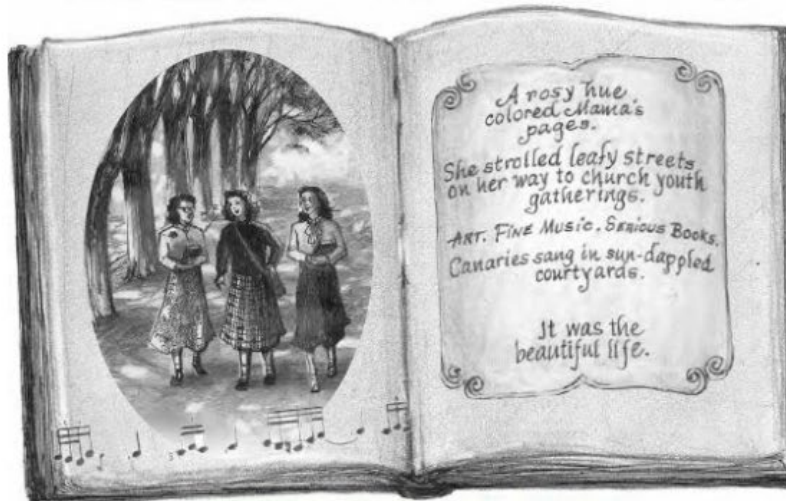 A rosy hue
colored Mama's
pages.
She strolled leafy streets
on her way to church youth
gatherings.
ART. FINE MUSIC. SERIOUS BOOKS.
Canaries sang in sun-dappled
courtyards.
It was the
beautiful life.